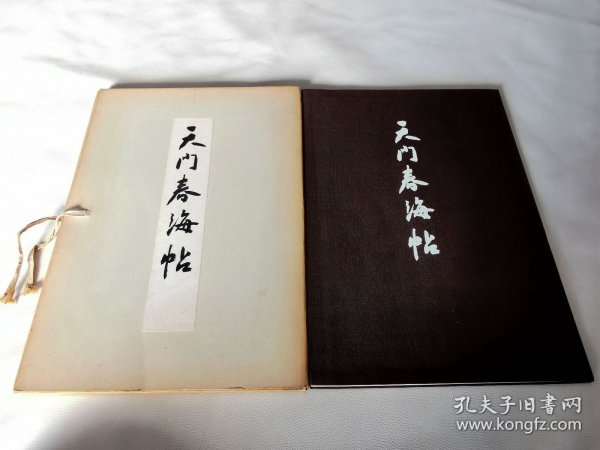 天门春海帖
天门春海帖
孔夫子旧書网
www.kongfz.com